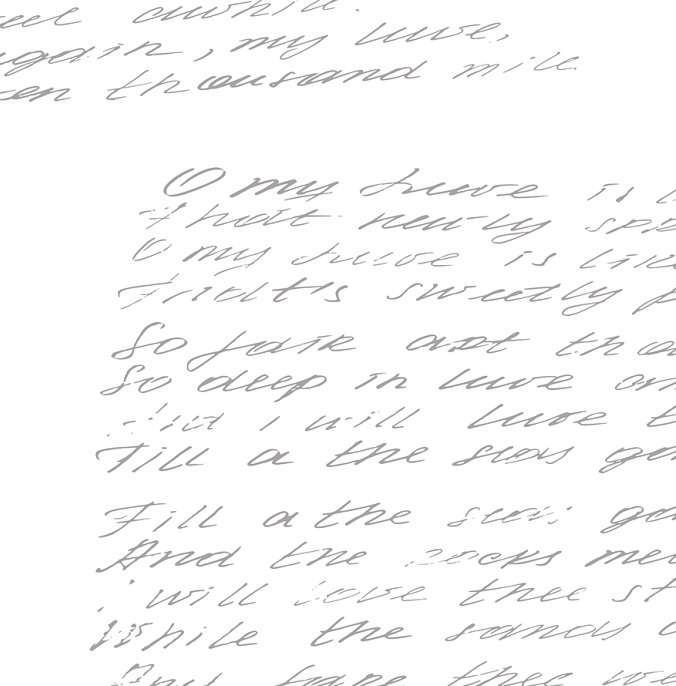 awhile.
again, my luve,
ten thousand mile
O my Luve is
That newly
O my Luve is like
That's sweetly p
So fair art thou
So deep in luve
And I will luve t
Till a the seas
Till a the seas
And the rocks
I will love thee st
While the sands
thee we